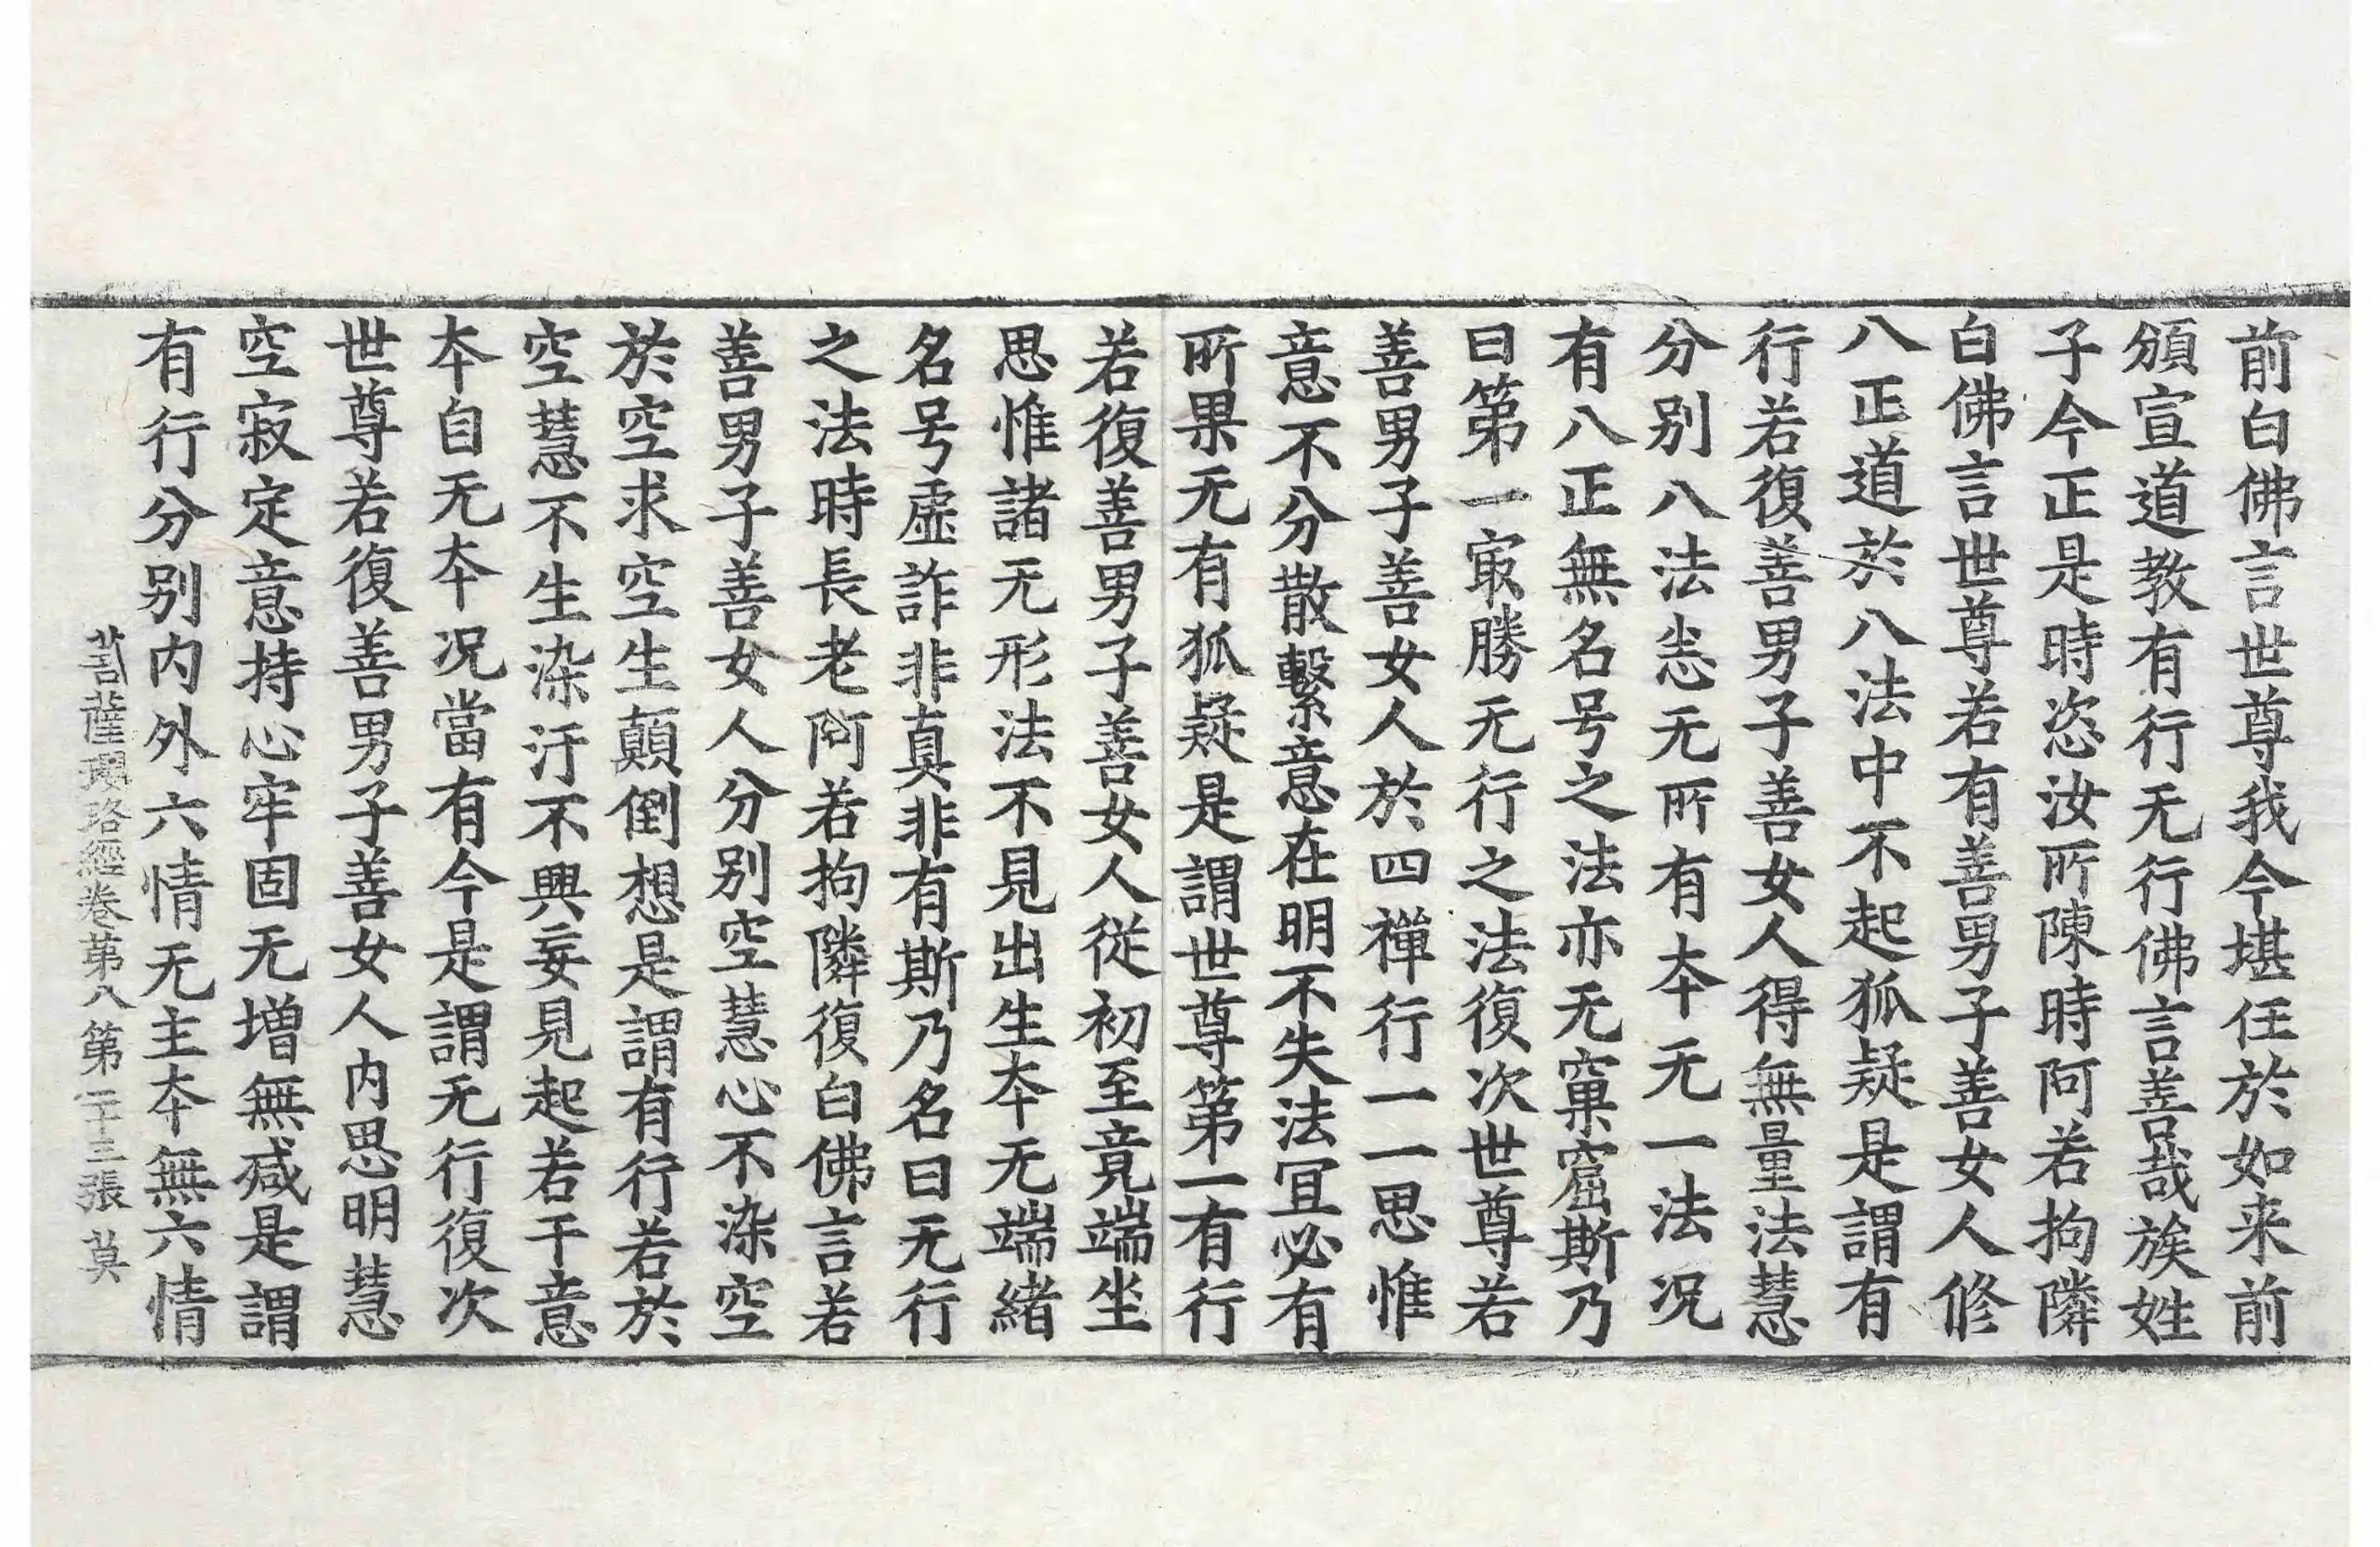 前白佛言世尊我今堪任於如来前
頒宣道教有行无行佛言善哉族姓
子今正是時恣汝所陳時阿若拘隣
白佛言世尊若有善男子善女人修
八正道於八法中不起狐疑是謂有
行若復善男子善女人得無量法慧
分别八法恙无所有夲无一法况
有八正無名号之法亦无窠窟斯乃
曰第一㝡勝无行之法復次世尊若
善男子善女人於四禪行一一思惟
意不分散繫意在明不失法冝必有
所果无有狐疑是謂世尊第一有行
若復善男子善女人從初至竟端坐
思惟諸无形法不見出生夲无端緒
名号虛詐非真非有斯乃名曰无行
之法時長老阿若拘隣復白佛言若
善男子善女人分别空慧心不染空
於空求空生顛倒想是謂有行若於
空慧不生染汙不興妄見起若干意
夲自无夲况當有今是謂无行復次
世尊若復善男子善女人内思明慧
空寂定意持心牢固无增無减是謂
有行分别内外六情无主夲無六情
菩薩瓔珞經卷第八 第二十三張 莫